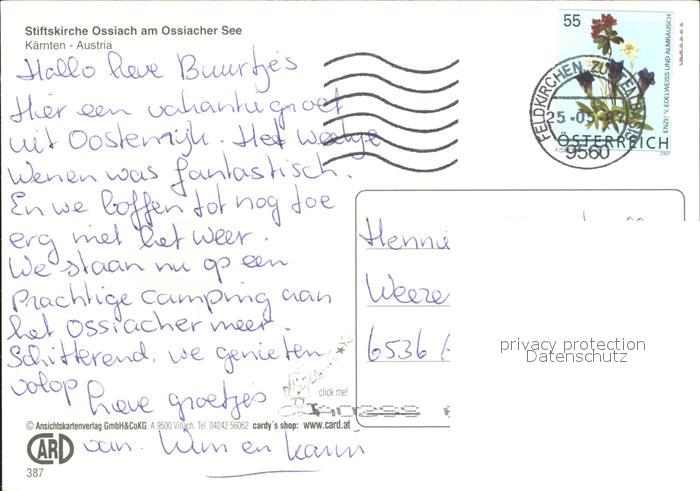 Stiftskirche Ossiach am Ossiacher See
Kärnten - Austria
Hallo lieve Buurtjes
Hier een vakantiegroet
uit Oostenrijk. Het weekje
Wenen was fantastisch.
En we boffen tot nog toe
erg met het weer.
We staan nu op een
Prachtige camping aan
het Ossiacher meer.
Schitterend, we genieten
volop
lieve groetjes
van. Wim en Karin
55
ENZIAN, EDELWEISS UND ALMRAUSCH
ÖSTERREICH
2007
FELDKIRCHEN
25 -05
9560
Hennie
Weeze
6536
privacy protection
Datenschutz
click me!
© Ansichtskartenverlag GmbH&CoKG A 9500 Villach, Tel. 04242 56062 cardy´s shop: www.card.at
CARD
387